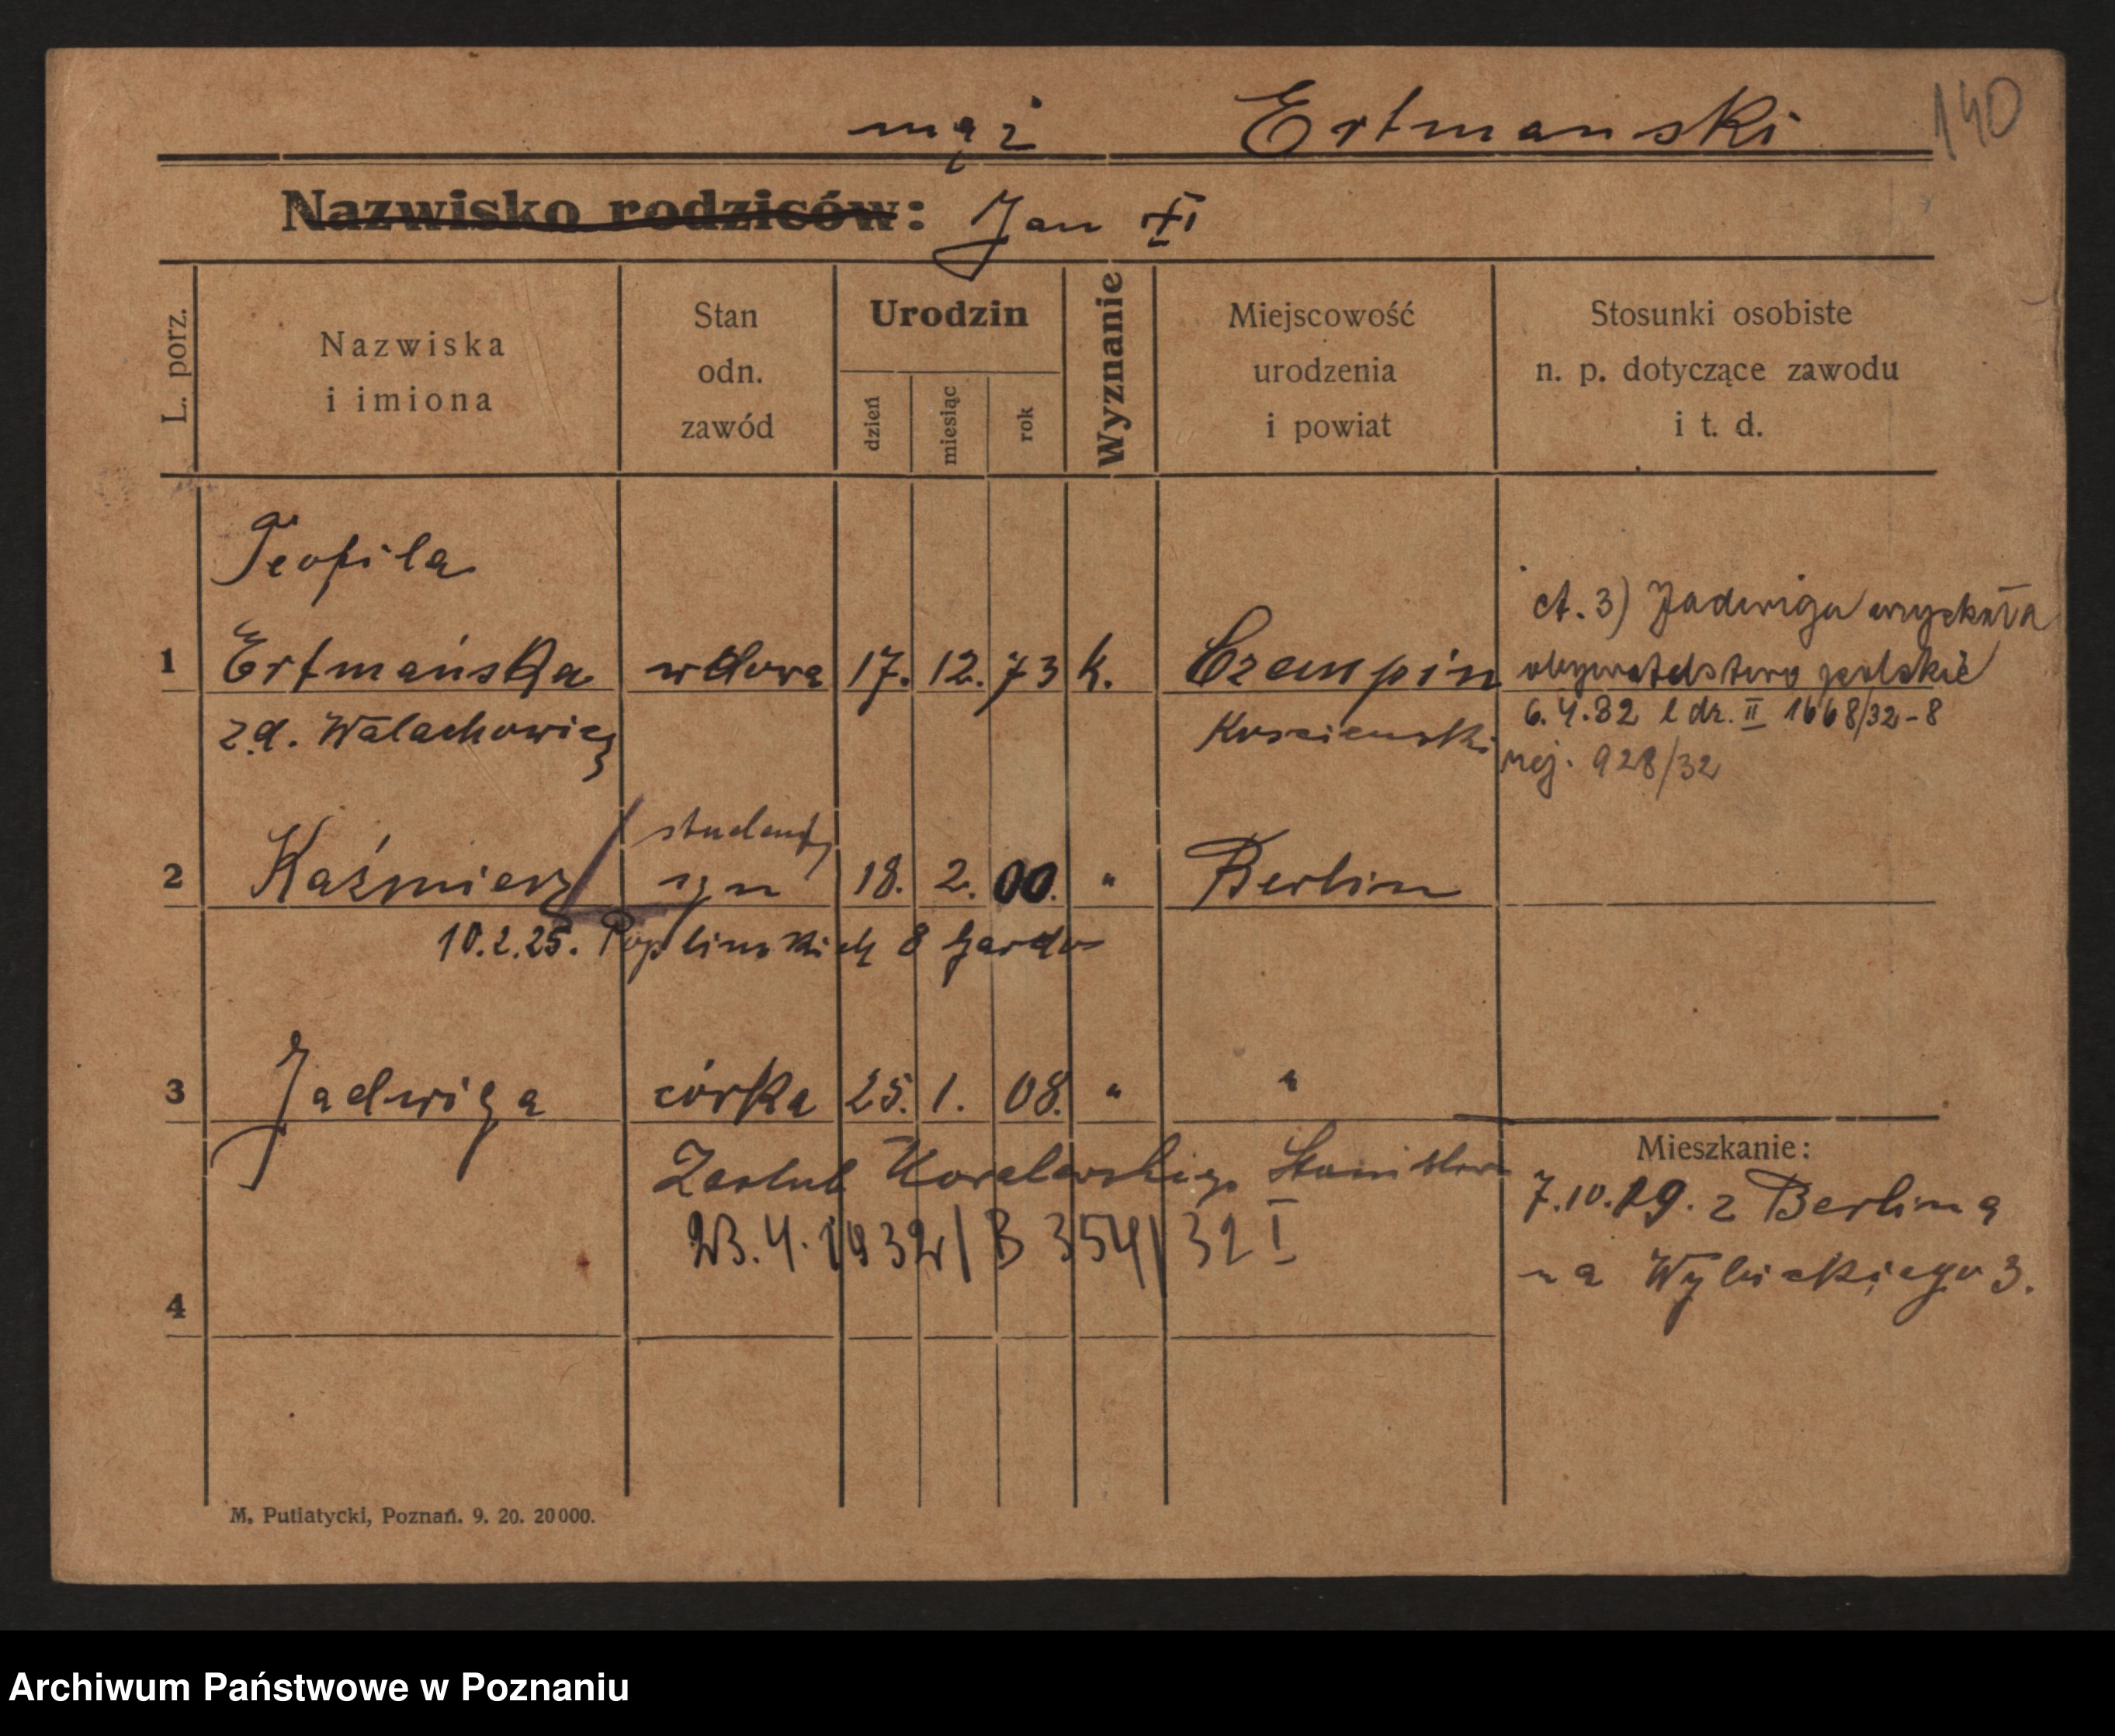 mąż Ertmanski 140
Nazwisko rodziców: Jan XI
L. porz.
Nazwiska
i imiona
Stan
odn.
zawód
Urodzin
dzień
miesiąc
rok
Wyznanie
Miejscowość
urodzenia
i powiat
Stosunki osobiste
n. p. dotyczące zawodu
i t. d.
Teofila
1 Ertmańska wdowa 17. 12. 73 k. Czempin
z d. Walachowicz Kościenski
ct. 3) Jadwiga uzyskała
obywatelstwo polskie
6. 4. 32 l dz. II 1668/32-8
rej. 928/32
student,
2 Kaźmierz syn 18. 2. 00. " Berlin
10.2.25. Poplinskich 8 Gardo
3 Jadwiga córka 25. 1. 08. " "
Zaślub Kowalewskiego Stanisław
23.4.1932/B 354/32 I
4
Mieszkanie:
7.10.19. z Berlina
na Wybickiego 3.
M. Putiatycki, Poznań. 9. 20. 20000.
Archiwum Państwowe w Poznaniu